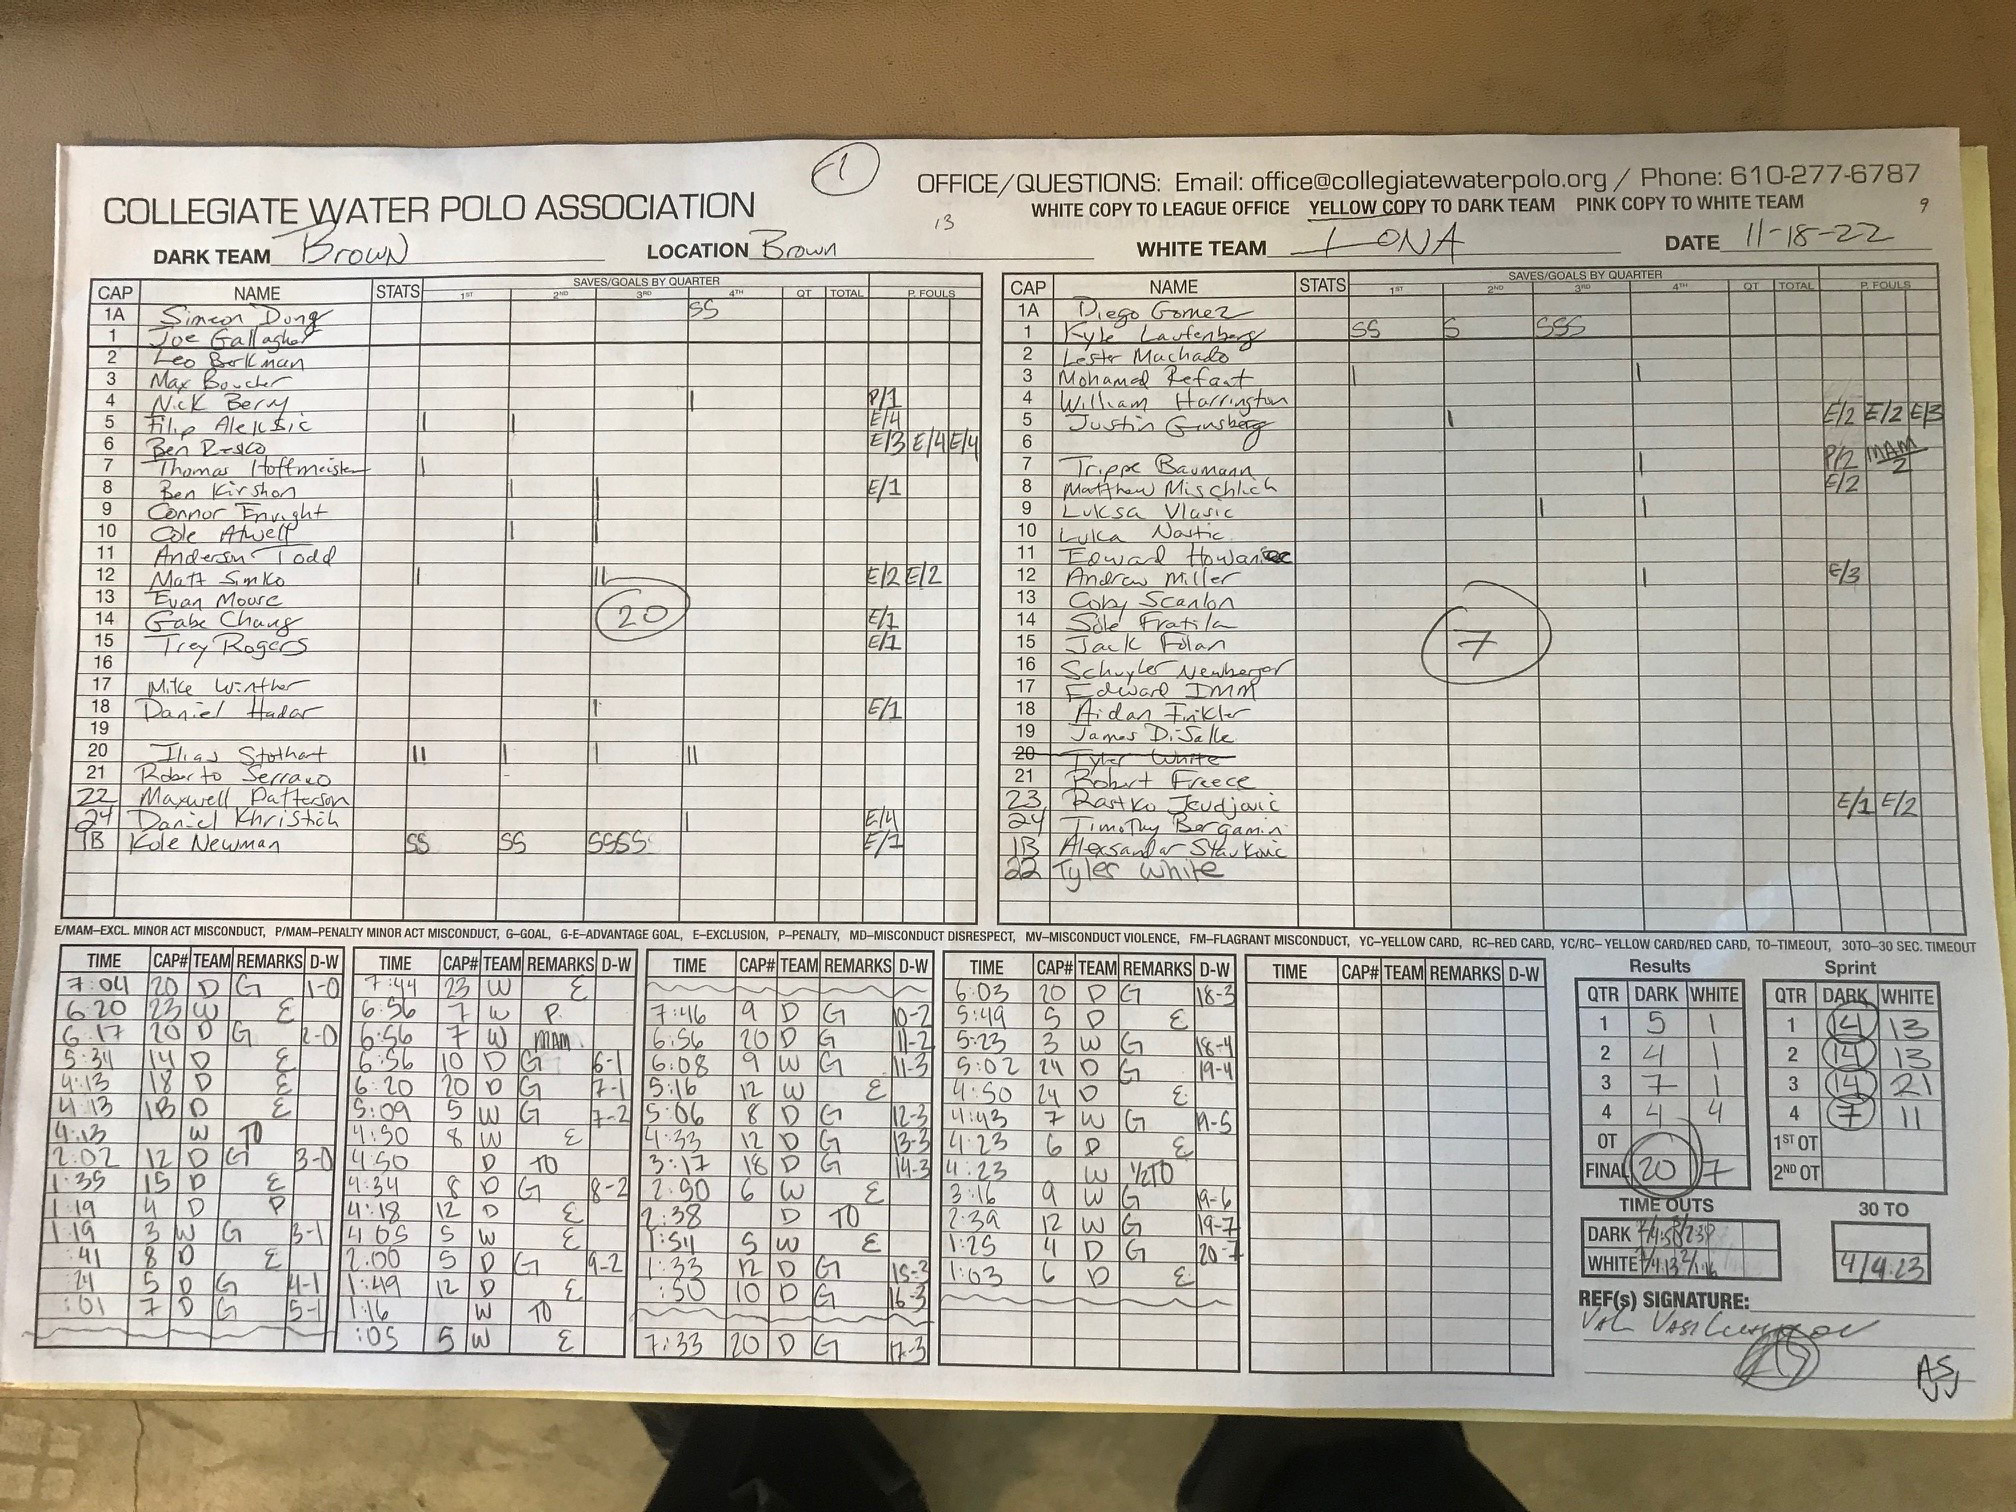 1
COLLEGIATE WATER POLO ASSOCIATION
OFFICE/QUESTIONS: Email: office@collegiatewaterpolo.org / Phone: 610-277-6787
13 WHITE COPY TO LEAGUE OFFICE YELLOW COPY TO DARK TEAM PINK COPY TO WHITE TEAM 9
DARK TEAM Brown LOCATION Brown WHITE TEAM IONA DATE 11-18-22
CAP NAME STATS SAVES/GOALS BY QUARTER 1ST 2ND 3RD 4TH OT TOTAL P. FOULS
1A Simeon Dong SS
1 Joe Gallagher
2 Leo Berkman
3 Max Boucher
4 Nick Berry | P/1
5 Filip Aleksic | | E/4
6 Ben Resko E/3 E/4 E/4
7 Thomas Hoffmeister |
8 Ben Kirshon | | E/1
9 Connor Enright |
10 Cole Atwell | |
11 Anderson Todd
12 Matt Simko | || E/2 E/2
13 Evan Mouse
14 Gabe Chang 20 E/1
15 Trey Rogers E/1
16
17 Mike Winther
18 Daniel Hadar | E/1
19
20 Ilias Stothart || | | ||
21 Roberto Serrano
22 Maxwell Patterson
24 Daniel Khristich | E/4
1B Kole Newman SS SS SSSS E/1
CAP NAME STATS SAVES/GOALS BY QUARTER 1ST 2ND 3RD 4TH OT TOTAL P. FOULS
1A Diego Gomez
1 Kyle Laufenberg SS S SSS
2 Lester Machado
3 Mohamed Refaat | |
4 William Harrington
5 Justin Ginsberg | E/2 E/2 E/3
6
7 Trippe Baumann | P/2 MAM/2
8 Matthew Mischlich E/2
9 Luksa Vlasic | |
10 Luka Nastic
11 Edward
12 Andrew Miller | E/3
13 Coby Scanlon
14 Fratila
15 Jack Folan 7
16 Schuyler Newberger
17 Edward IMM
18 Aidan Finkler
19 James DiSalle
20 Tyler White
21 Robert Freece
23 Rastko Jevdjovic E/1 E/2
24 Timothy Bergamin
1B Alexsandar Stavkovic
22 Tyler White
E/MAM–EXCL. MINOR ACT MISCONDUCT, P/MAM–PENALTY MINOR ACT MISCONDUCT, G–GOAL, G-E–ADVANTAGE GOAL, E–EXCLUSION, P–PENALTY, MD–MISCONDUCT DISRESPECT, MV–MISCONDUCT VIOLENCE, FM–FLAGRANT MISCONDUCT, YC–YELLOW CARD, RC–RED CARD, YC/RC– YELLOW CARD/RED CARD, TO–TIMEOUT, 30TO–30 SEC. TIMEOUT
TIME CAP# TEAM REMARKS D-W
7:04 20 D G 1-0
6:20 23 W E
6:17 20 D G 2-0
5:34 14 D E
4:13 18 D E
4:13 1B D E
4:13 W TO
2:02 12 D G 3-0
1:35 15 D E
1:19 4 D P
1:19 3 W G 3-1
:41 8 D E
:24 5 D G 4-1
:01 7 D G 5-1
TIME CAP# TEAM REMARKS D-W
7:44 23 W E
6:56 7 W P
6:56 7 W MAM
6:56 10 D G 6-1
6:20 20 D G 7-1
5:09 5 W G 7-2
4:50 8 W E
4:50 D TO
4:34 8 D G 8-2
4:18 12 D E
4:05 5 W E
2:00 5 D G 9-2
1:49 12 D E
1:16 W TO
:05 5 W E
TIME CAP# TEAM REMARKS D-W
7:46 9 D G 10-2
6:56 20 D G 11-2
6:08 9 W G 11-3
5:16 12 W E
5:06 8 D G 12-3
4:33 12 D G 13-3
3:17 18 D G 14-3
2:50 6 W E
2:38 D TO
1:54 5 W E
1:33 12 D G 15-3
:50 10 D G 16-3
7:33 20 D G 17-3
TIME CAP# TEAM REMARKS D-W
6:03 20 D G 18-3
5:49 5 D E
5:23 3 W G 18-4
5:02 24 D G 19-4
4:50 24 D E
4:43 7 W G 19-5
4:23 6 D E
4:23 W 1/2TO
3:16 9 W G 19-6
2:39 12 W G 19-7
1:25 4 D G 20-7
1:03 6 D E
TIME CAP# TEAM REMARKS D-W
Results
QTR DARK WHITE
1 5 1
2 4 1
3 7 1
4 4 4
OT
FINAL 20 7
Sprint
QTR DARK WHITE
1 14 13
2 14 13
3 14 21
4 7 11
1ST OT
2ND OT
TIME OUTS
DARK
WHITE
30 TO
4/4:23
REF(s) SIGNATURE: